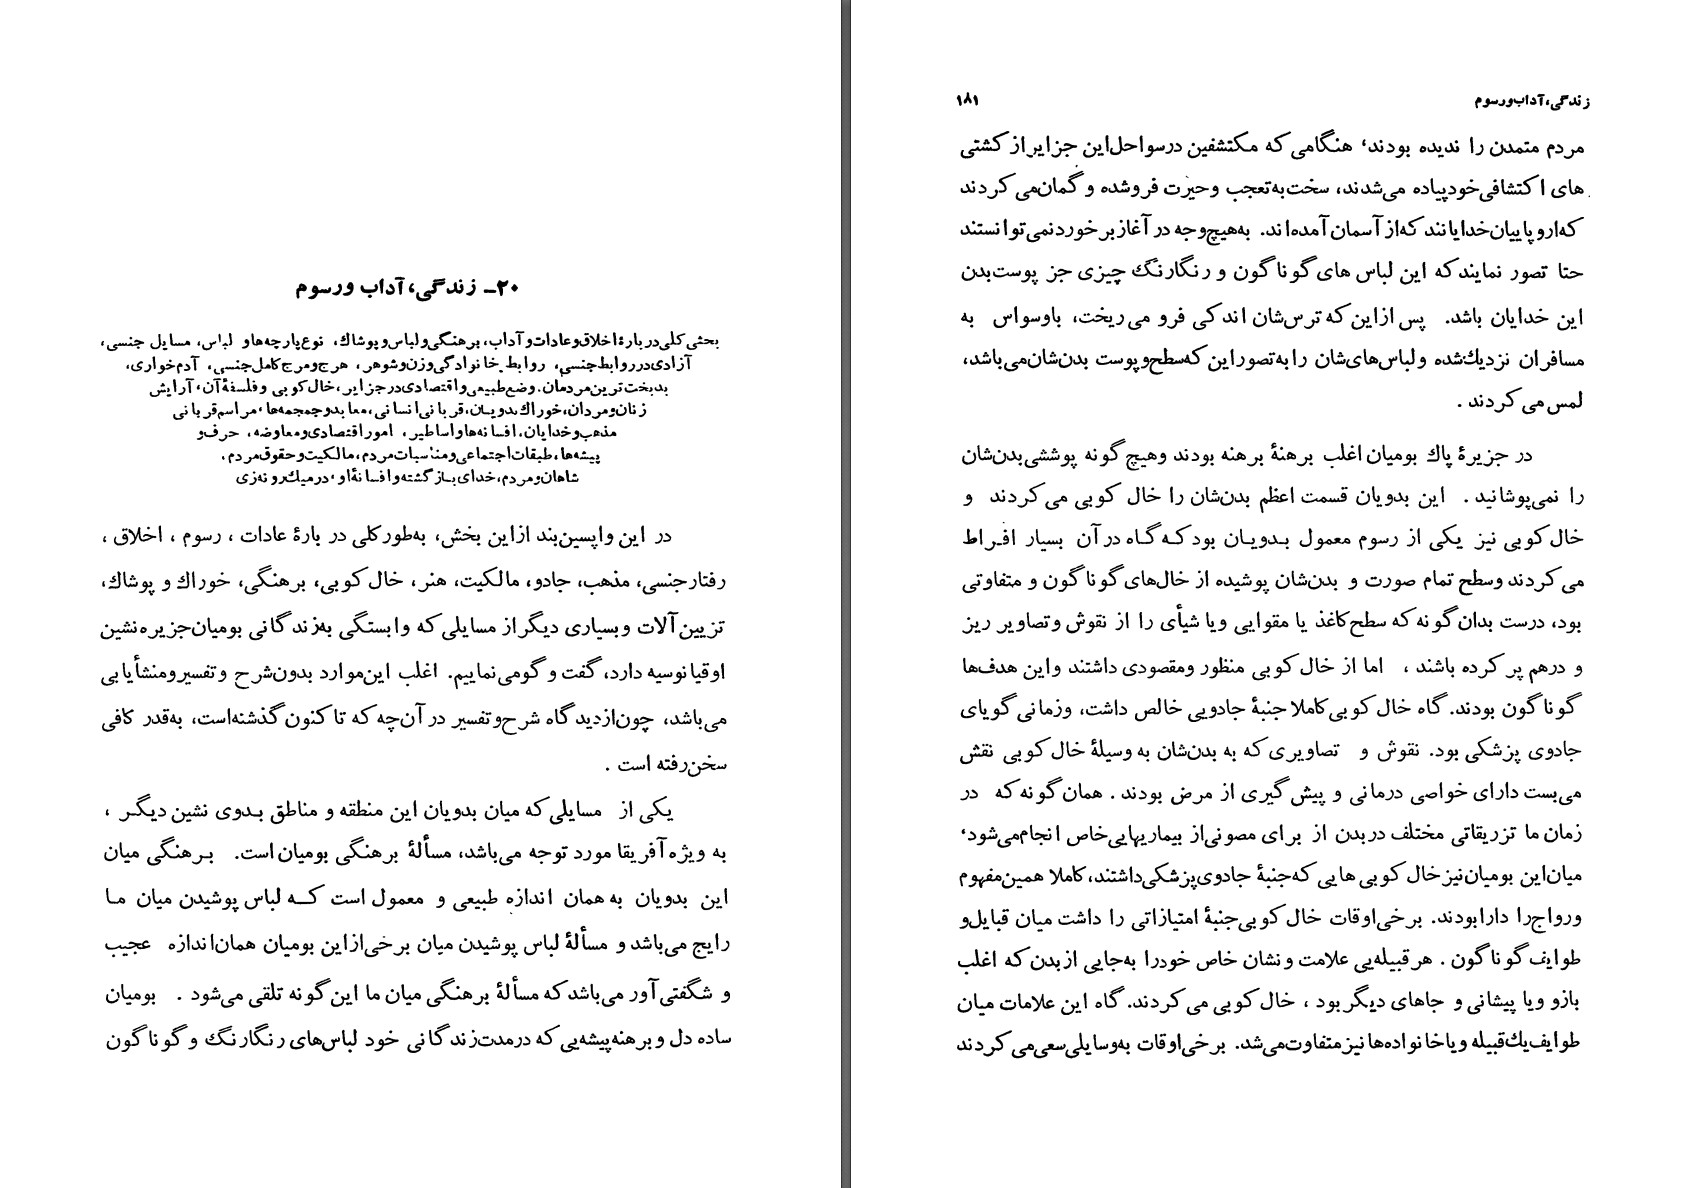 ۲۰ـ زندگی، آداب ورسوم
بحثی کلی در بارهٔ اخلاق و عادات و آداب، برهنگی و لباس و پوشاك، نوع پارچه‌ها و لباس، مسایل جنسی،
آزادی در روابط جنسی، روابط خانوادگی و زن و شوهر، هرج و مرج کامل جنسی، آدم خواری،
بدبخت ترین مردمان. وضع طبیعی و اقتصادی در جزایر، خال کوبی و فلسفهٔ آن، آرایش
زنان و مردان، خوراك بدویـان، قربانی انسانی، معابد و جمجمه‌ها، مراسم قربانی
مذهب و خدایان، افسانه‌ها و اساطیر، امور اقتصادی و معاوضه، حرف و
پیشه‌ها، طبقات اجتماعی و مناسبات مردم، مالکیت و حقوق مردم،
شاهان و مردم، خدای بـازگشته و افسانهٔ او، در میك رونه‌زی
در این واپسین‌بند ازاین بخش، به‌طورکلی در بارهٔ عادات ، رسوم ، اخلاق ،
رفتار جنسی، مذهب، جادو، مالکیت، هنر، خال کوبی، برهنگی، خوراك و پوشاك،
تزیین آلات و بسیاری دیگر از مسایلی که وابستگی به‌زندگانی بومیان جزیره نشین
اوقیانوسیه دارد، گفت و گو می‌نماییم. اغلب این‌موارد بدون‌شرح و تفسیر و منشأیابی
می‌باشد، چون‌ازدیدگاه شرح‌و تفسیر در آن‌چه که تاکنون گذشته‌است، به‌قدر کافی
سخن‌رفته است .
یکی از مسایلی که میان بدویان این منطقه و مناطق بـدوی نشین دیگـر ،
به ویژه آفریقا مورد توجه می‌باشد، مسألهٔ برهنگی بومیان است. بـرهنگی میان
این بدویان به همان اندازه طبیعی و معمول است کـه لباس پوشیدن میان مـا
رایج می‌باشد و مسألهٔ لباس پوشیدن میان برخی‌ازاین بومیان همان‌اندازه عجیب
و شگفتی آور می‌باشد که مسألهٔ برهنگی میان ما این گونه تلقی می‌شود . بومیان
ساده دل و برهنه‌پیشه‌یی که درمدت‌زندگانی خود لباس‌های رنگارنگ و گوناگون
زندگی، آداب ورسوم ۱۸۱
مردم متمدن را ندیده بودند، هنگامی که مکتشفین درسواحل‌این جزایر از کشتی
های اکتشافی‌خود پیاده می‌شدند، سخت‌به‌تعجب وحیرت فروشده و گمان‌می کردند
که‌اروپاییان‌خدایانند که‌از آسمان آمده‌اند. به‌هیچ‌وجه در آغاز بر خوردنمی‌توانستند
حتا تصور نمایند که این لباس های گوناگون و رنگارنگ چیزی جز پوست‌بدن
این خدایان باشد. پس ازاین که ترس‌شان اندکی فرو می ریخت، باوسواس به
مسافران نزدیك‌شده و لباس‌های‌شان را به‌تصوراین که‌سطح‌و پوست بدن‌شان‌می‌باشد،
لمس می کردند .
در جزیرهٔ پاك بومیان اغلب برهنهٔ برهنه بودند وهیچ گونه پوششی بدن‌شان
را نمی‌پوشانید . این بدویان قسمت اعظم بدن‌شان را خال کوبی می کردند و
خال کوبی نیز یکی از رسوم معمول بـدویـان بود کـه گـاه در آن بسیار افـراط
می کردند وسطح تمام صورت و بدن‌شان پوشیده از خال‌های گوناگون و متفاوتی
بود، درست بدان گونه که سطح‌کاغذ یا مقوایی ویا شیأی را از نقوش وتصاویر ریز
و درهم پر کرده باشند ، اما از خال کوبی منظور ومقصودی داشتند و این هدف‌ها
گوناگون بودند. گاه خال کوبی کاملا جنبهٔ جادویی خالص داشت، وزمانی گویای
جادوی پزشکی بود. نقوش و تصاویری که به بدن‌شان به وسیلهٔ خال کوبی نقش
می‌بست دارای خواصی درمانی و پیش گیری از مرض بودند . همان گونه که در
زمان ما تزریقاتی مختلف دربدن از برای مصونی‌از بیماریهایی‌خاص انجام‌می‌شود،
میان‌این بومیان‌نیز خال کوبی هایی که‌جنبهٔ جادوی‌پزشکی‌داشتند، کاملا همین‌مفهوم
ورواج‌را دارابودند. برخی‌اوقات خال کوبی‌جنبهٔ امتیازاتی را داشت میان قبایل‌و
طوایف گوناگون . هر قبیله‌یی علامت و نشان خاص خودرا به‌جایی ازبدن که اغلب
بازو ویا پیشانی و جاهای دیگر بود ، خال کوبی می کردند. گاه این علامات میان
طوایف‌یك‌قبیله ویاخانواده‌ها نیز متفاوت‌می‌شد. برخی‌اوقات به‌وسایلی‌سعی‌می کردند